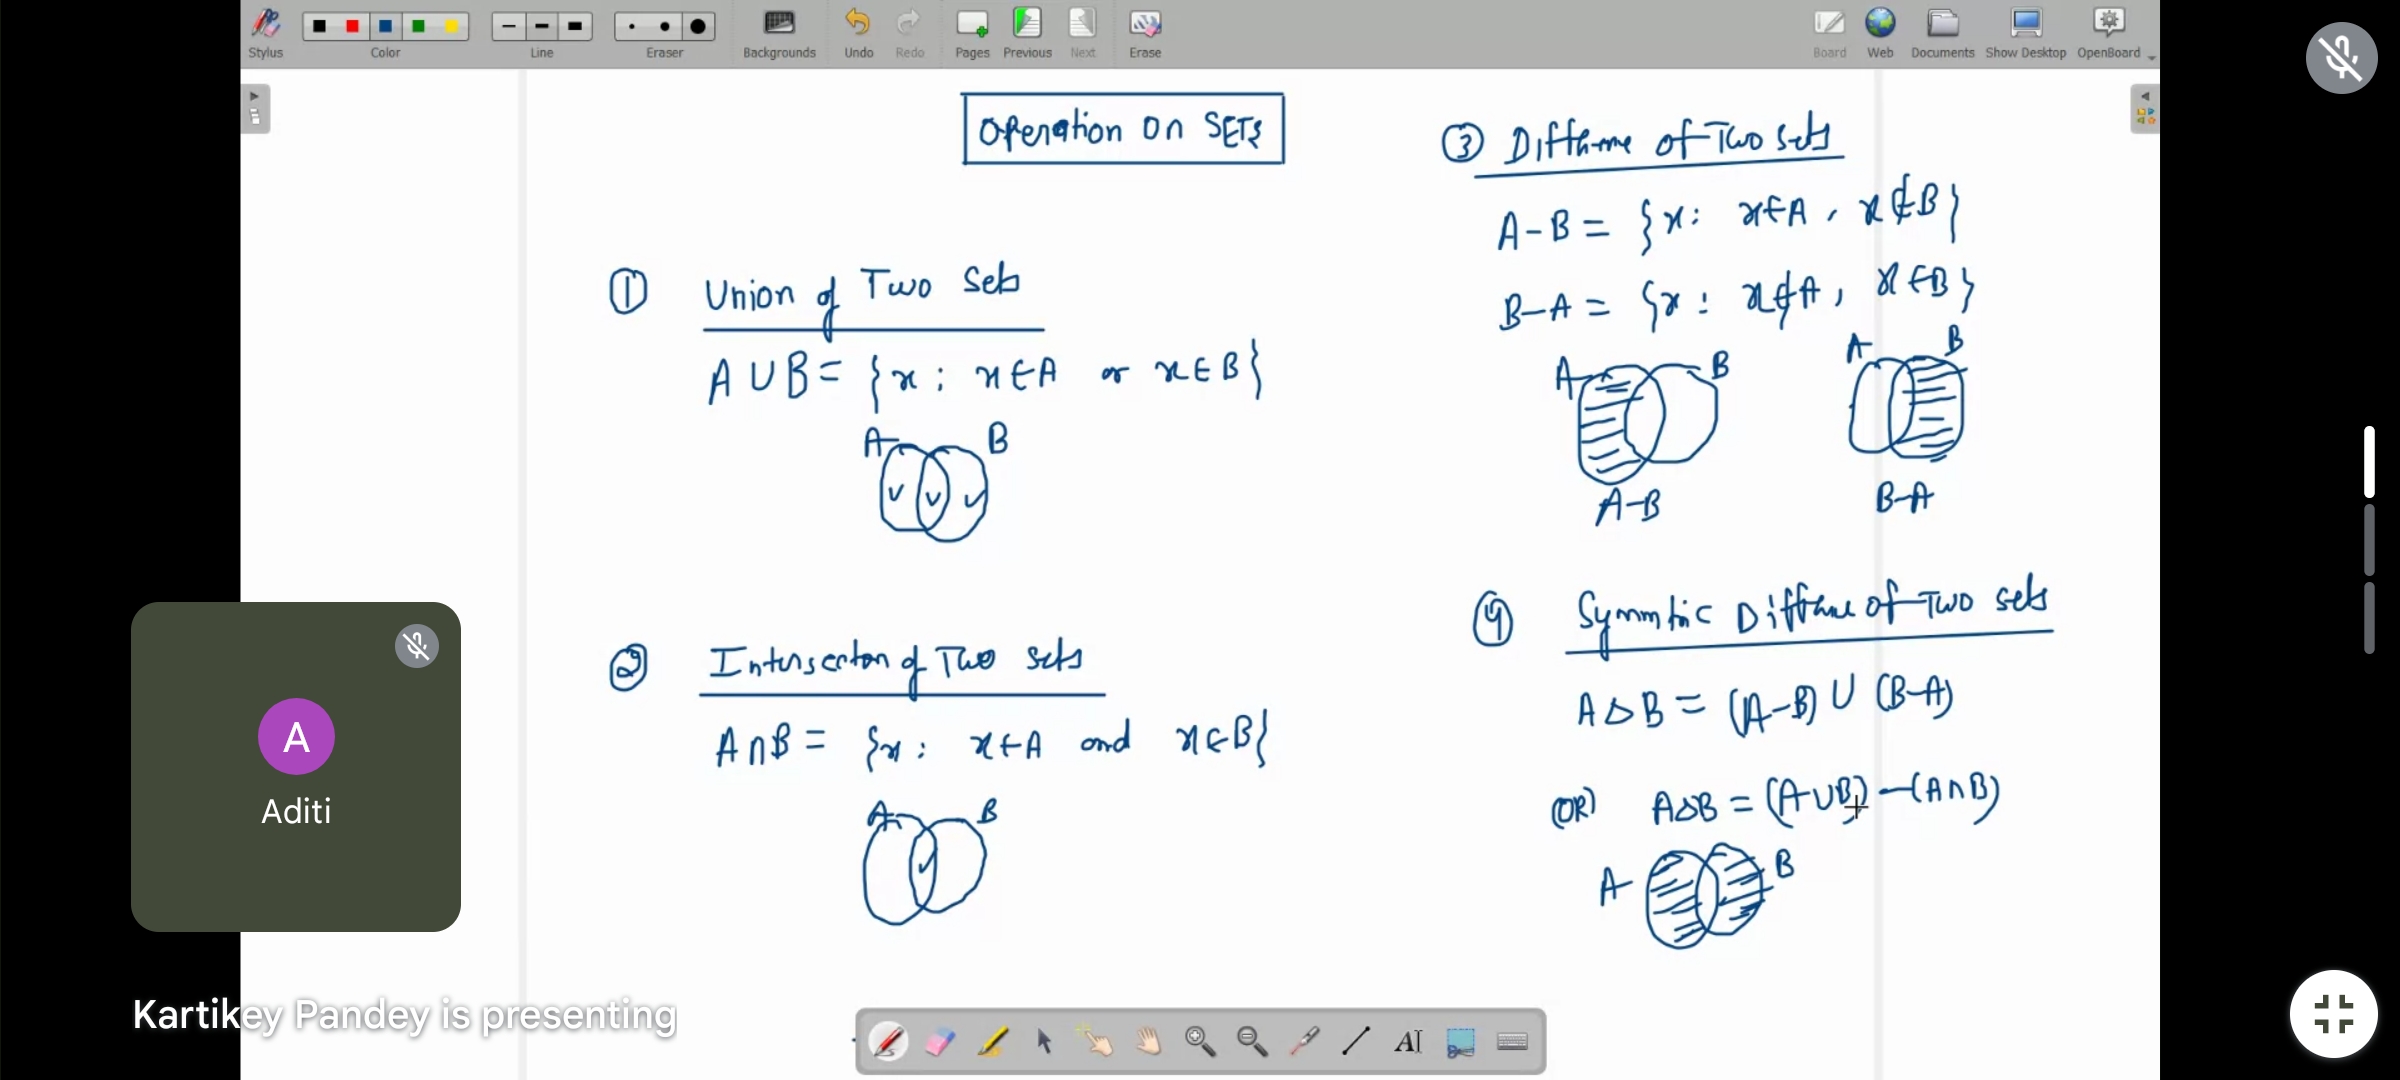 Stylus Color Line Eraser Backgrounds Undo Redo Pages Previous Next Erase Board Web Documents Show Desktop OpenBoard
Operation on SETS
① Union of Two Sets
A ∪ B = {x : x ∈ A or x ∈ B}
A B
② Intersection of Two sets
A ∩ B = {x : x ∈ A and x ∈ B}
A B
③ Difference of Two sets
A - B = {x : x ∈ A, x ∉ B}
B - A = {x : x ∉ A, x ∈ B}
A B A B
A-B B-A
④ Symmtric Difference of Two sets
A Δ B = (A-B) ∪ (B-A)
(OR) A Δ B = (A∪B) - (A∩B)
A B
A
Aditi
Kartikey Pandey is presenting